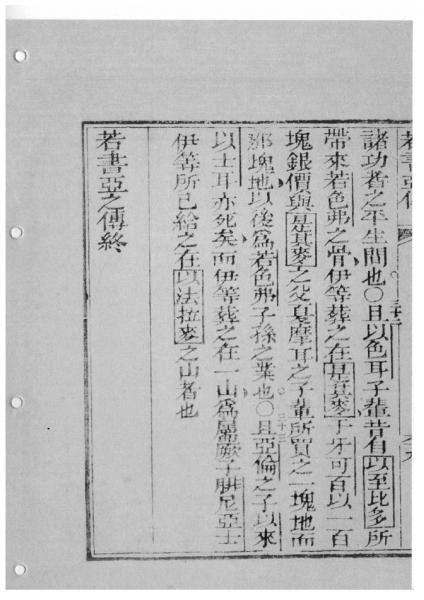 若書亞傳
諸功者之平生間也○三十二且以色耳子輩昔自以至比多所
帶來若色弗之骨伊等葬之在是其麥于牙可百以一百
塊銀價與是其麥之父夏摩耳之子輩所買之一塊地而
那塊地以後為若色弗子孫之業也○三十三且亞倫之子以來
以士耳亦死矣而伊等葬之在一山為屬厥子腓尼亞士
伊等所已給之在以法拉麥之山者也
若書亞之傳終